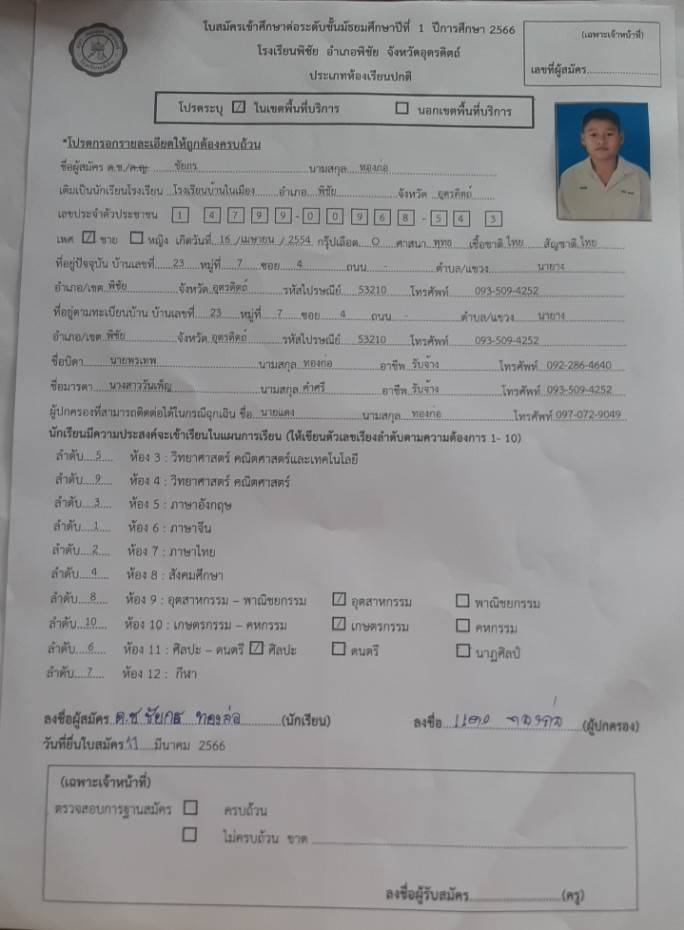 ใบสมัครเข้าศึกษาต่อระดับชั้นมัธยมศึกษาปีที่ 1 ปีการศึกษา 2566
(เฉพาะเจ้าหน้าที่)
โรงเรียนพิชัย อำเภอพิชัย จังหวัดอุตรดิตถ์
เลขที่ผู้สมัคร
ประเภทห้องเรียนปกติ
โปรดระบุ ☑ ในเขตพื้นที่บริการ ☐ นอกเขตพื้นที่บริการ
*โปรดกรอกรายละเอียดให้ถูกต้องครบถ้วน
ชื่อผู้สมัคร ด.ช./ด.ญ. ชัยกร นามสกุล ทองก่อ
เดิมเป็นนักเรียนโรงเรียน โรงเรียนบ้านในเมือง อำเภอ พิชัย จังหวัด อุตรดิตถ์
เลขประจำตัวประชาชน 1 4 7 9 9 - 0 0 9 6 8 - 5 4 3
เพศ ☑ ชาย ☐ หญิง เกิดวันที่ 16 /เมษายน / 2554 กรุ๊ปเลือด O ศาสนา พุทธ เชื้อชาติ ไทย สัญชาติ ไทย
ที่อยู่ปัจจุบัน บ้านเลขที่ 23 หมู่ที่ 7 ซอย 4 ถนน - ตำบล/แขวง นายาง
อำเภอ/เขต พิชัย จังหวัด อุตรดิตถ์ รหัสไปรษณีย์ 53210 โทรศัพท์ 093-509-4252
ที่อยู่ตามทะเบียนบ้าน บ้านเลขที่ 23 หมู่ที่ 7 ซอย 4 ถนน - ตำบล/แขวง นายาง
อำเภอ/เขต พิชัย จังหวัด อุตรดิตถ์ รหัสไปรษณีย์ 53210 โทรศัพท์ 093-509-4252
ชื่อบิดา นายพรเทพ นามสกุล ทองก่อ อาชีพ รับจ้าง โทรศัพท์ 092-286-4640
ชื่อมารดา นางสาววันเพ็ญ นามสกุล คำศรี อาชีพ รับจ้าง โทรศัพท์ 093-509-4252
ผู้ปกครองที่สามารถติดต่อได้ในกรณีฉุกเฉิน ชื่อ นายแดง นามสกุล ทองก่อ โทรศัพท์ 097-072-9049
นักเรียนมีความประสงค์จะเข้าเรียนในแผนการเรียน (ให้เขียนตัวเลขเรียงลำดับตามความต้องการ 1- 10)
ลำดับ 5 ห้อง 3 : วิทยาศาสตร์ คณิตศาสตร์และเทคโนโลยี
ลำดับ 9 ห้อง 4 : วิทยาศาสตร์ คณิตศาสตร์
ลำดับ 3 ห้อง 5 : ภาษาอังกฤษ
ลำดับ 1 ห้อง 6 : ภาษาจีน
ลำดับ 2 ห้อง 7 : ภาษาไทย
ลำดับ 4 ห้อง 8 : สังคมศึกษา
ลำดับ 8 ห้อง 9 : อุตสาหกรรม - พาณิชยกรรม ☑ อุตสาหกรรม ☐ พาณิชยกรรม
ลำดับ 10 ห้อง 10 : เกษตรกรรม - คหกรรม ☑ เกษตรกรรม ☐ คหกรรม
ลำดับ 6 ห้อง 11 : ศิลปะ - ดนตรี ☑ ศิลปะ ☐ ดนตรี ☐ นาฏศิลป์
ลำดับ 7 ห้อง 12 : กีฬา
ลงชื่อผู้สมัคร ด.ช ชัยกร ทองก่อ (นักเรียน) ลงชื่อ แดง ทองก่อ (ผู้ปกครอง)
วันที่ยื่นใบสมัคร 11 มีนาคม 2566
(เฉพาะเจ้าหน้าที่)
ตรวจสอบการฐานสมัคร ☐ ครบถ้วน
☐ ไม่ครบถ้วน ขาด
ลงชื่อผู้รับสมัคร (ครู)